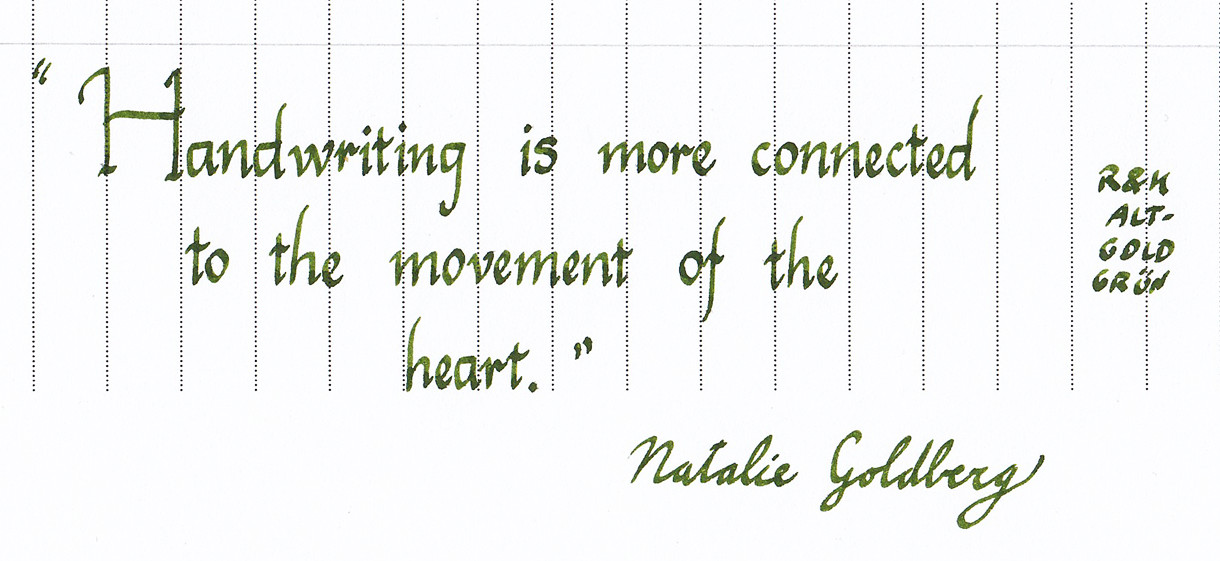 “Handwriting is more connected
to the movement of the
heart.”
Natalie Goldberg
R&K
ALT-
GOLD
GRÜN